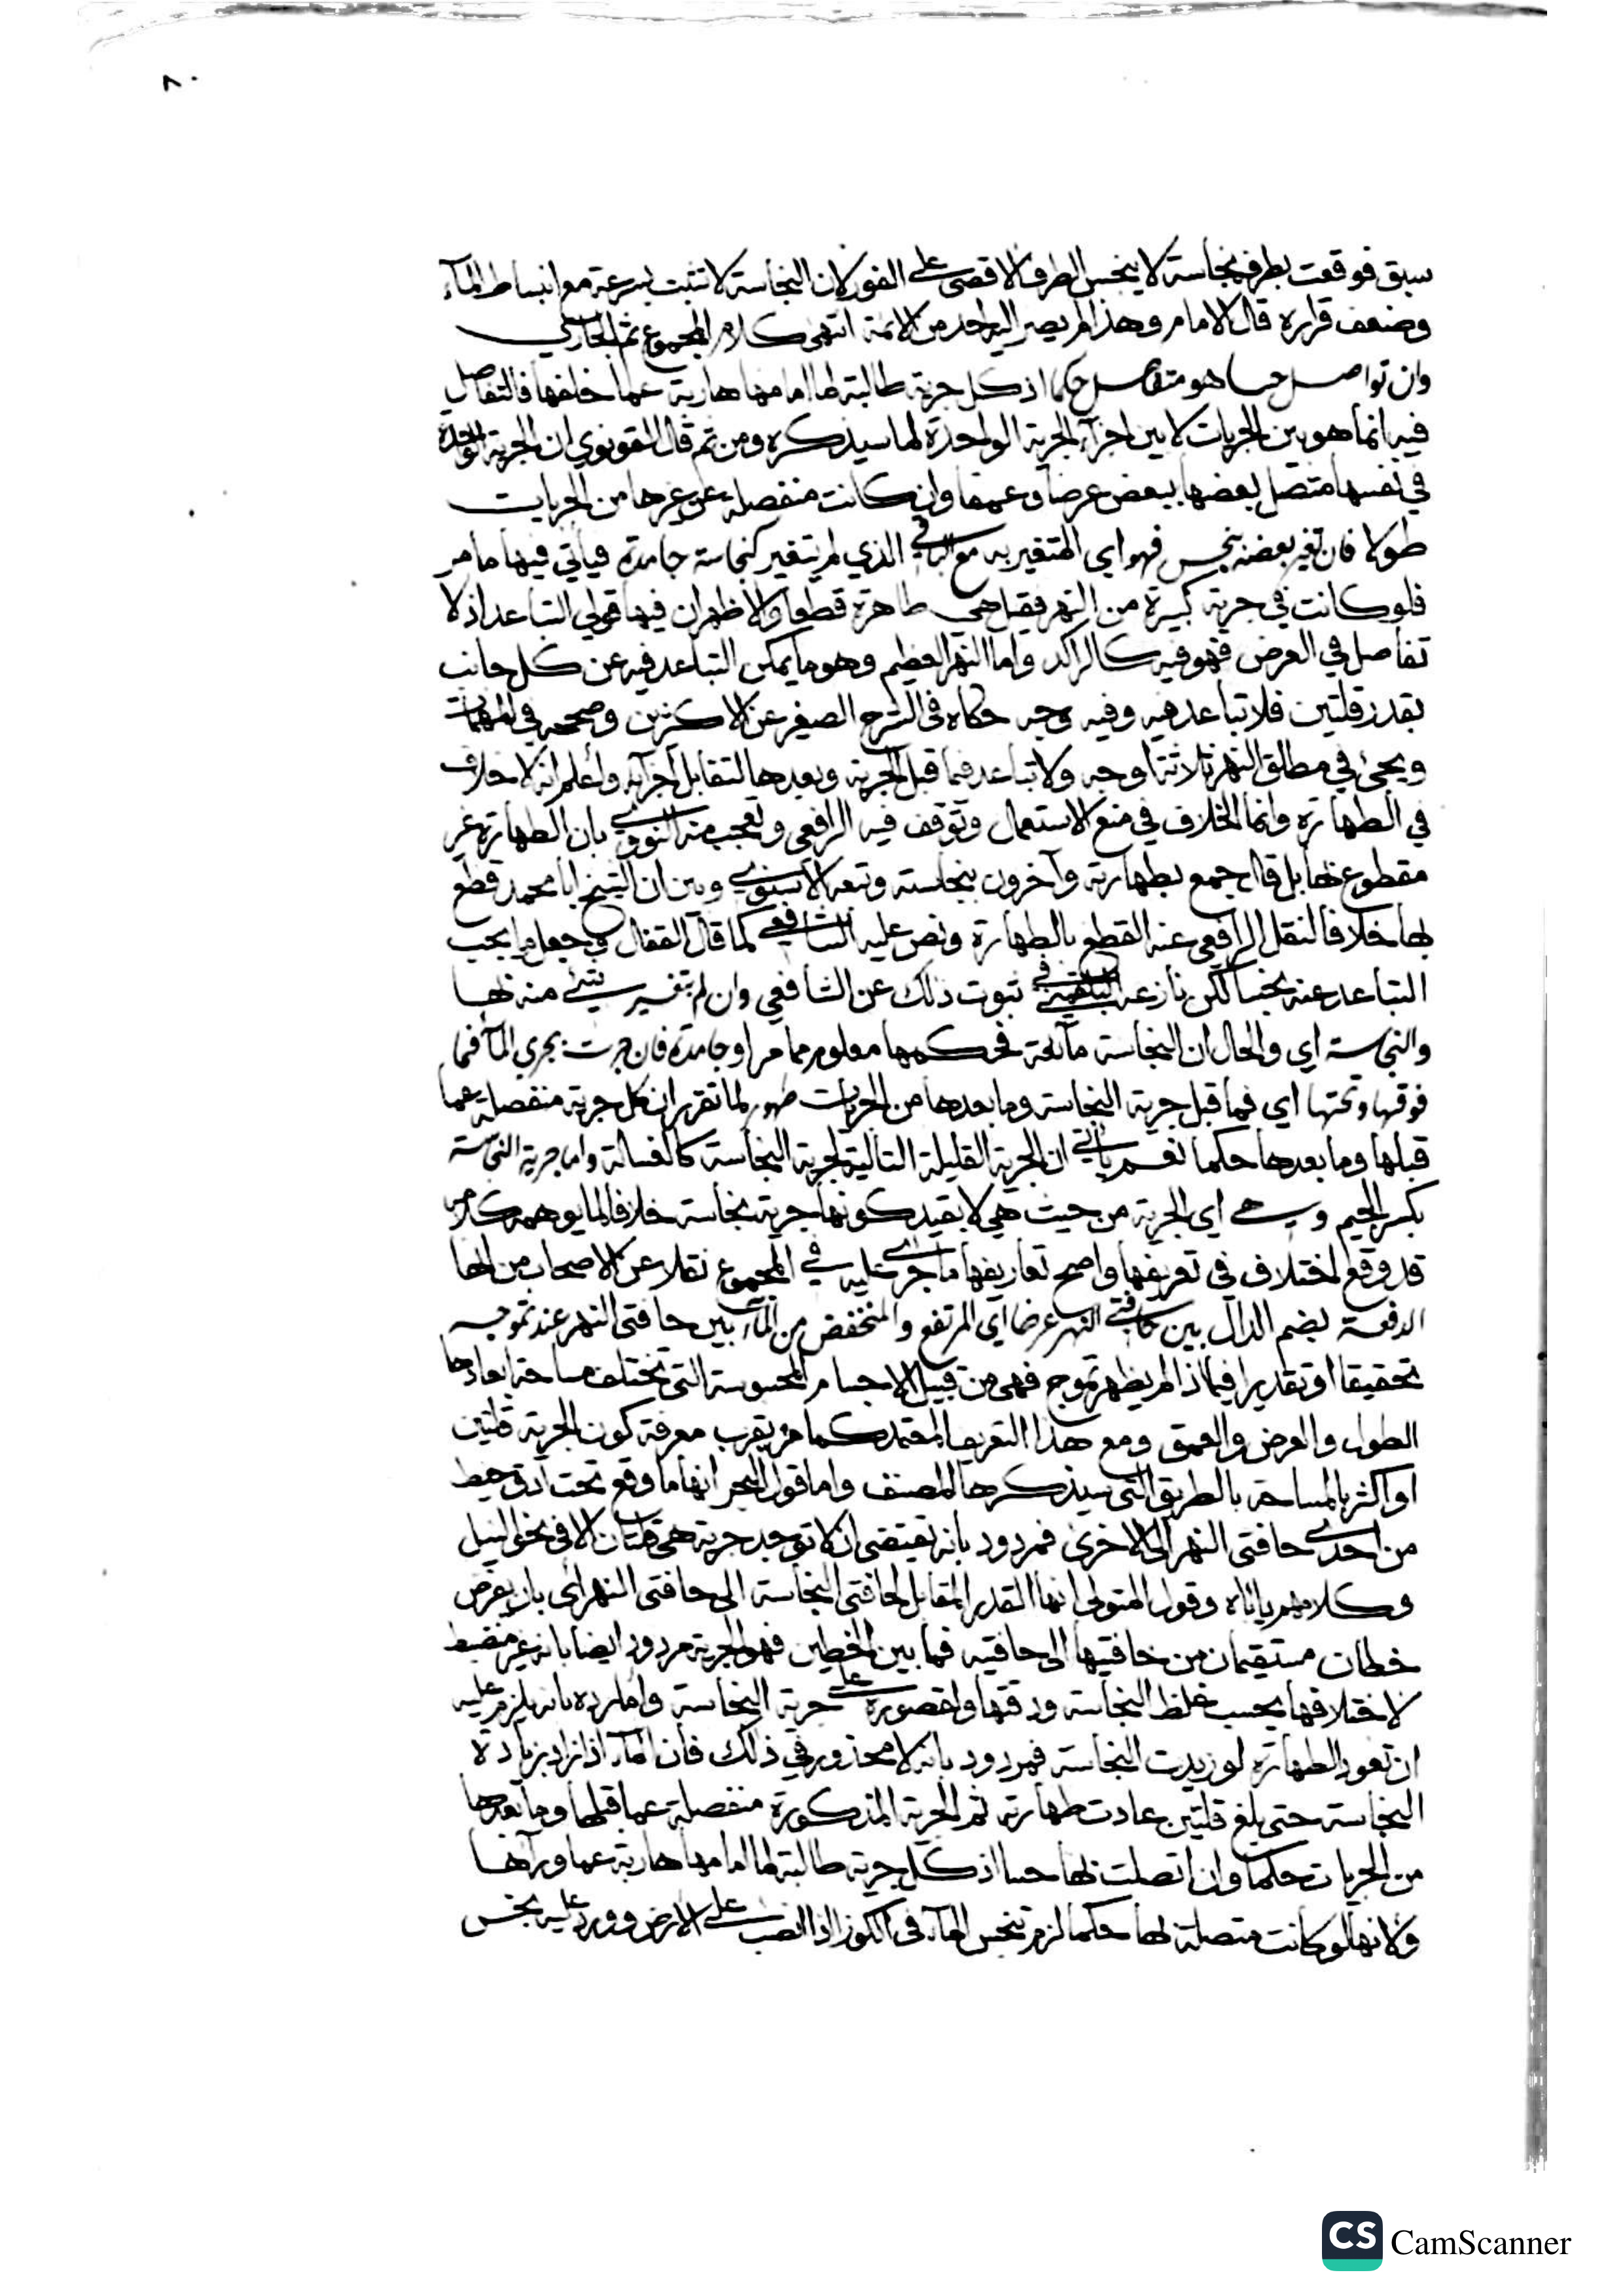 ٨٠
سبق فوقعت بطرفه نجاسة لا ينجس الطرف الاقصى على الفور لان النجاسة لا تثبت بسرعة مع انبساط المآء
وضعف قراره قال الامام وهذا لم يصر اليه احد من الائمة انتهى كلام المجموع ثم الجاري
وان تواصل حسا هو متفاصل حكما اذ كل جرية طالبة لما امامها هاربة عما خلفها فالتفاصل
فيه انما هو بين الجريات لا بين اجزآء الجرية الواحدة لما سيذكره ومن ثم قال القونوي ان الجرية الواحدة
في نفسها متصل بعضها ببعض عرضا وعمقا وان كانت منفصلة عن غيرها من الجريات
طولا فان تغير بعضه بنجس فهو اي المتغير به مع الباقي الذي لم يتغير كنجاسة جامدة فياتي فيها ما مر
فلو كانت في جرية كبيرة من النهر فقيل هي طاهرة قطعا والاظهر ان فيها قولي التباعد اذ لا
تفاصل في العرض فهو فيه كالراكد واما النهر العظيم وهو ما يمكن التباعد فيه عن كل جانب
بقدر قلتين فلا تباعد فيه وفيه وجه حكاه في الشرح الصغير عن الاكثرين وصححه في المهمات
ويجئ في مطلق النهر ثلاثة اوجه ولا تباعد فيما قبل الجرية وبعدها لتقابل اجزآئه واعلم انه لا خلاف
في الطهارة وانما الخلاف في منع الاستعمال وتوقف فيه الرافعي وتعجب منه النووي بان الطهارة غير
مقطوع بها بل قال جمع بطهارته وآخرون بنجاسته وتبعه الاسنوي وبين ان الشيخ ابا محمد قطع
بها خلافا لنقل الرافعي عنه القطع بالطهارة ونص عليه الشافعي كما قال القفال وجعل ما يجب
التباعد عنه نجسا لكن نازعه البلقيني في ثبوت ذلك عن الشافعي وان لم يتغير شئ منه بها
والنجاسة اي والحال ان النجاسة مآئعة فحكمها معلوم مما مر او جامدة فان جرت بجري المآء فما
فوقها وتحتها اي فما قبل جرية النجاسة وما بعدها من الجريات طهور لما تقرر ان كل جرية منفصلة عما
قبلها وما بعدها حكما نعم ياتي ان الجرية القليلة التالية لجرية النجاسة كالغسالة واما جرية النجاسة
بكسر الجيم وهي اي الجرية من حيث هي لا بقيد كونها جرية نجاسة خلافا لما يوهمه كلامه
قد وقع اختلاف في تعريفها واصح تعاريفها ما جرى عليه في المجموع نقلا عن الاصحاب من انها
الدفعة بضم الدال بين حافتي النهر عرضا اي المرتفع والمنخفض من المآء بين حافتي النهر عند تموجه
تحقيقا او تقديرا فيما اذا لم يظهر تموج فهي من قبيل الاجسام المحسوسة التي تختلف مساحة ابعادها
الطول والعرض والعمق ومع هذا التعريف المعتمد كما مر يقرب معرفة كون الجرية قلتين
او اكثر بالمساحة بالطريق التي سيذكرها المصنف واما قول البحر انها ما وقع تحت ادق خيط
من احدى حافتي النهر الى الاخرى فمردود بانه يقتضي ان لا توجد جرية هي قلتان الا في نحو النيل
وكلامهم ياباه وقول المتولي انها القدر المقابل لحافتي النجاسة الى حافتي النهر اي بان يفرض
خطان مستقيمان من حافتيها الى حافتيه فما بين الخطين فهو الجرية مردود ايضا بانه غير منضبط
لاختلافها بحسب غلظ النجاسة ودقتها ولقصوره على جرية النجاسة واما رده بانه يلزم عليه
ان تعود الطهارة لو زيدت النجاسة فمردود بانه لا محذور في ذلك فان المآء اذا زاد بزيادة
النجاسة حتى بلغ قلتين عادت طهارته ثم الجرية المذكورة منفصلة عما قبلها وما بعدها
من الجريات حكما وان اتصلت بها حسا اذ كل جرية طالبة لما امامها هاربة عما ورآئها
ولانها لو كانت متصلة بها حكما لزم تنجس المآء في الكوز اذا انصب على الارض وورد عليه نجس
CS CamScanner